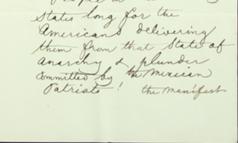 States long for the
Americans delivering
them from that State of
anarchy & plunder
committed by the Mexican
Patriots! the Manifest